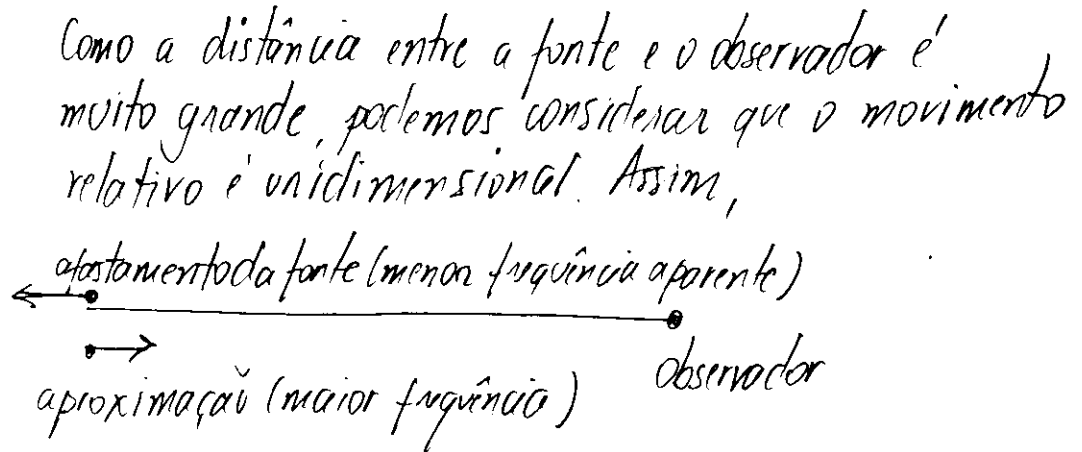 Como a distância entre a fonte e o observador é
muito grande, podemos considerar que o movimento
relativo é unidimensional. Assim,
afastamento da fonte (menor frequência aparente)
observador
aproximação (maior frequência)